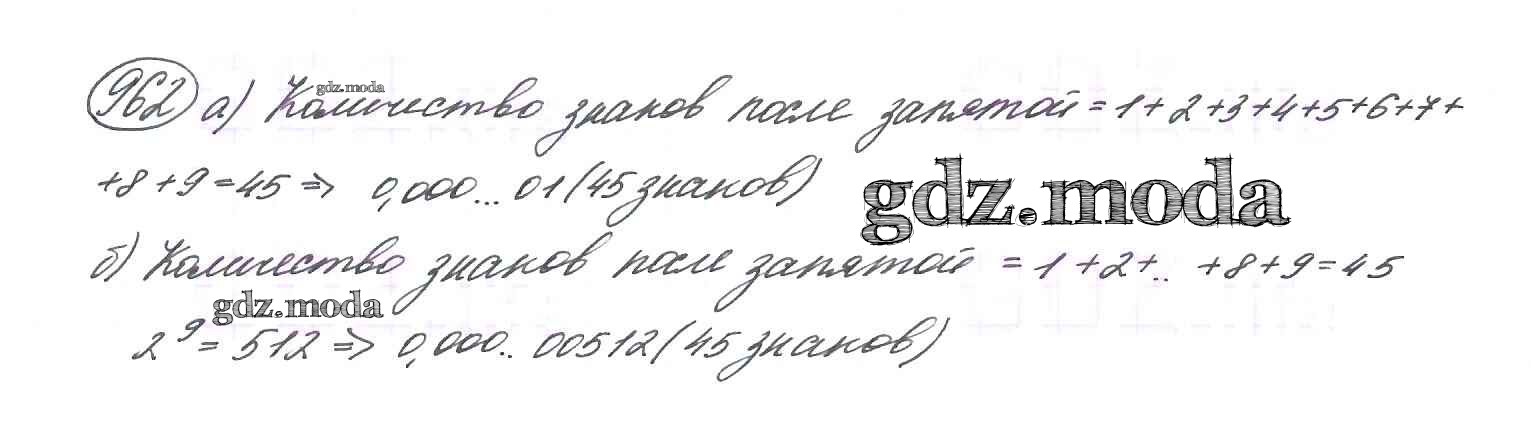 962 а) Количество знаков после запятой = 1+2+3+4+5+6+7+
gdz.moda
+8+9=45 => 0,000...01 (45 знаков)
gdz.moda
б) Количество знаков после запятой = 1+2+.. +8+9=45
gdz.moda
2⁹=512 => 0,000..00512 (45 знаков)